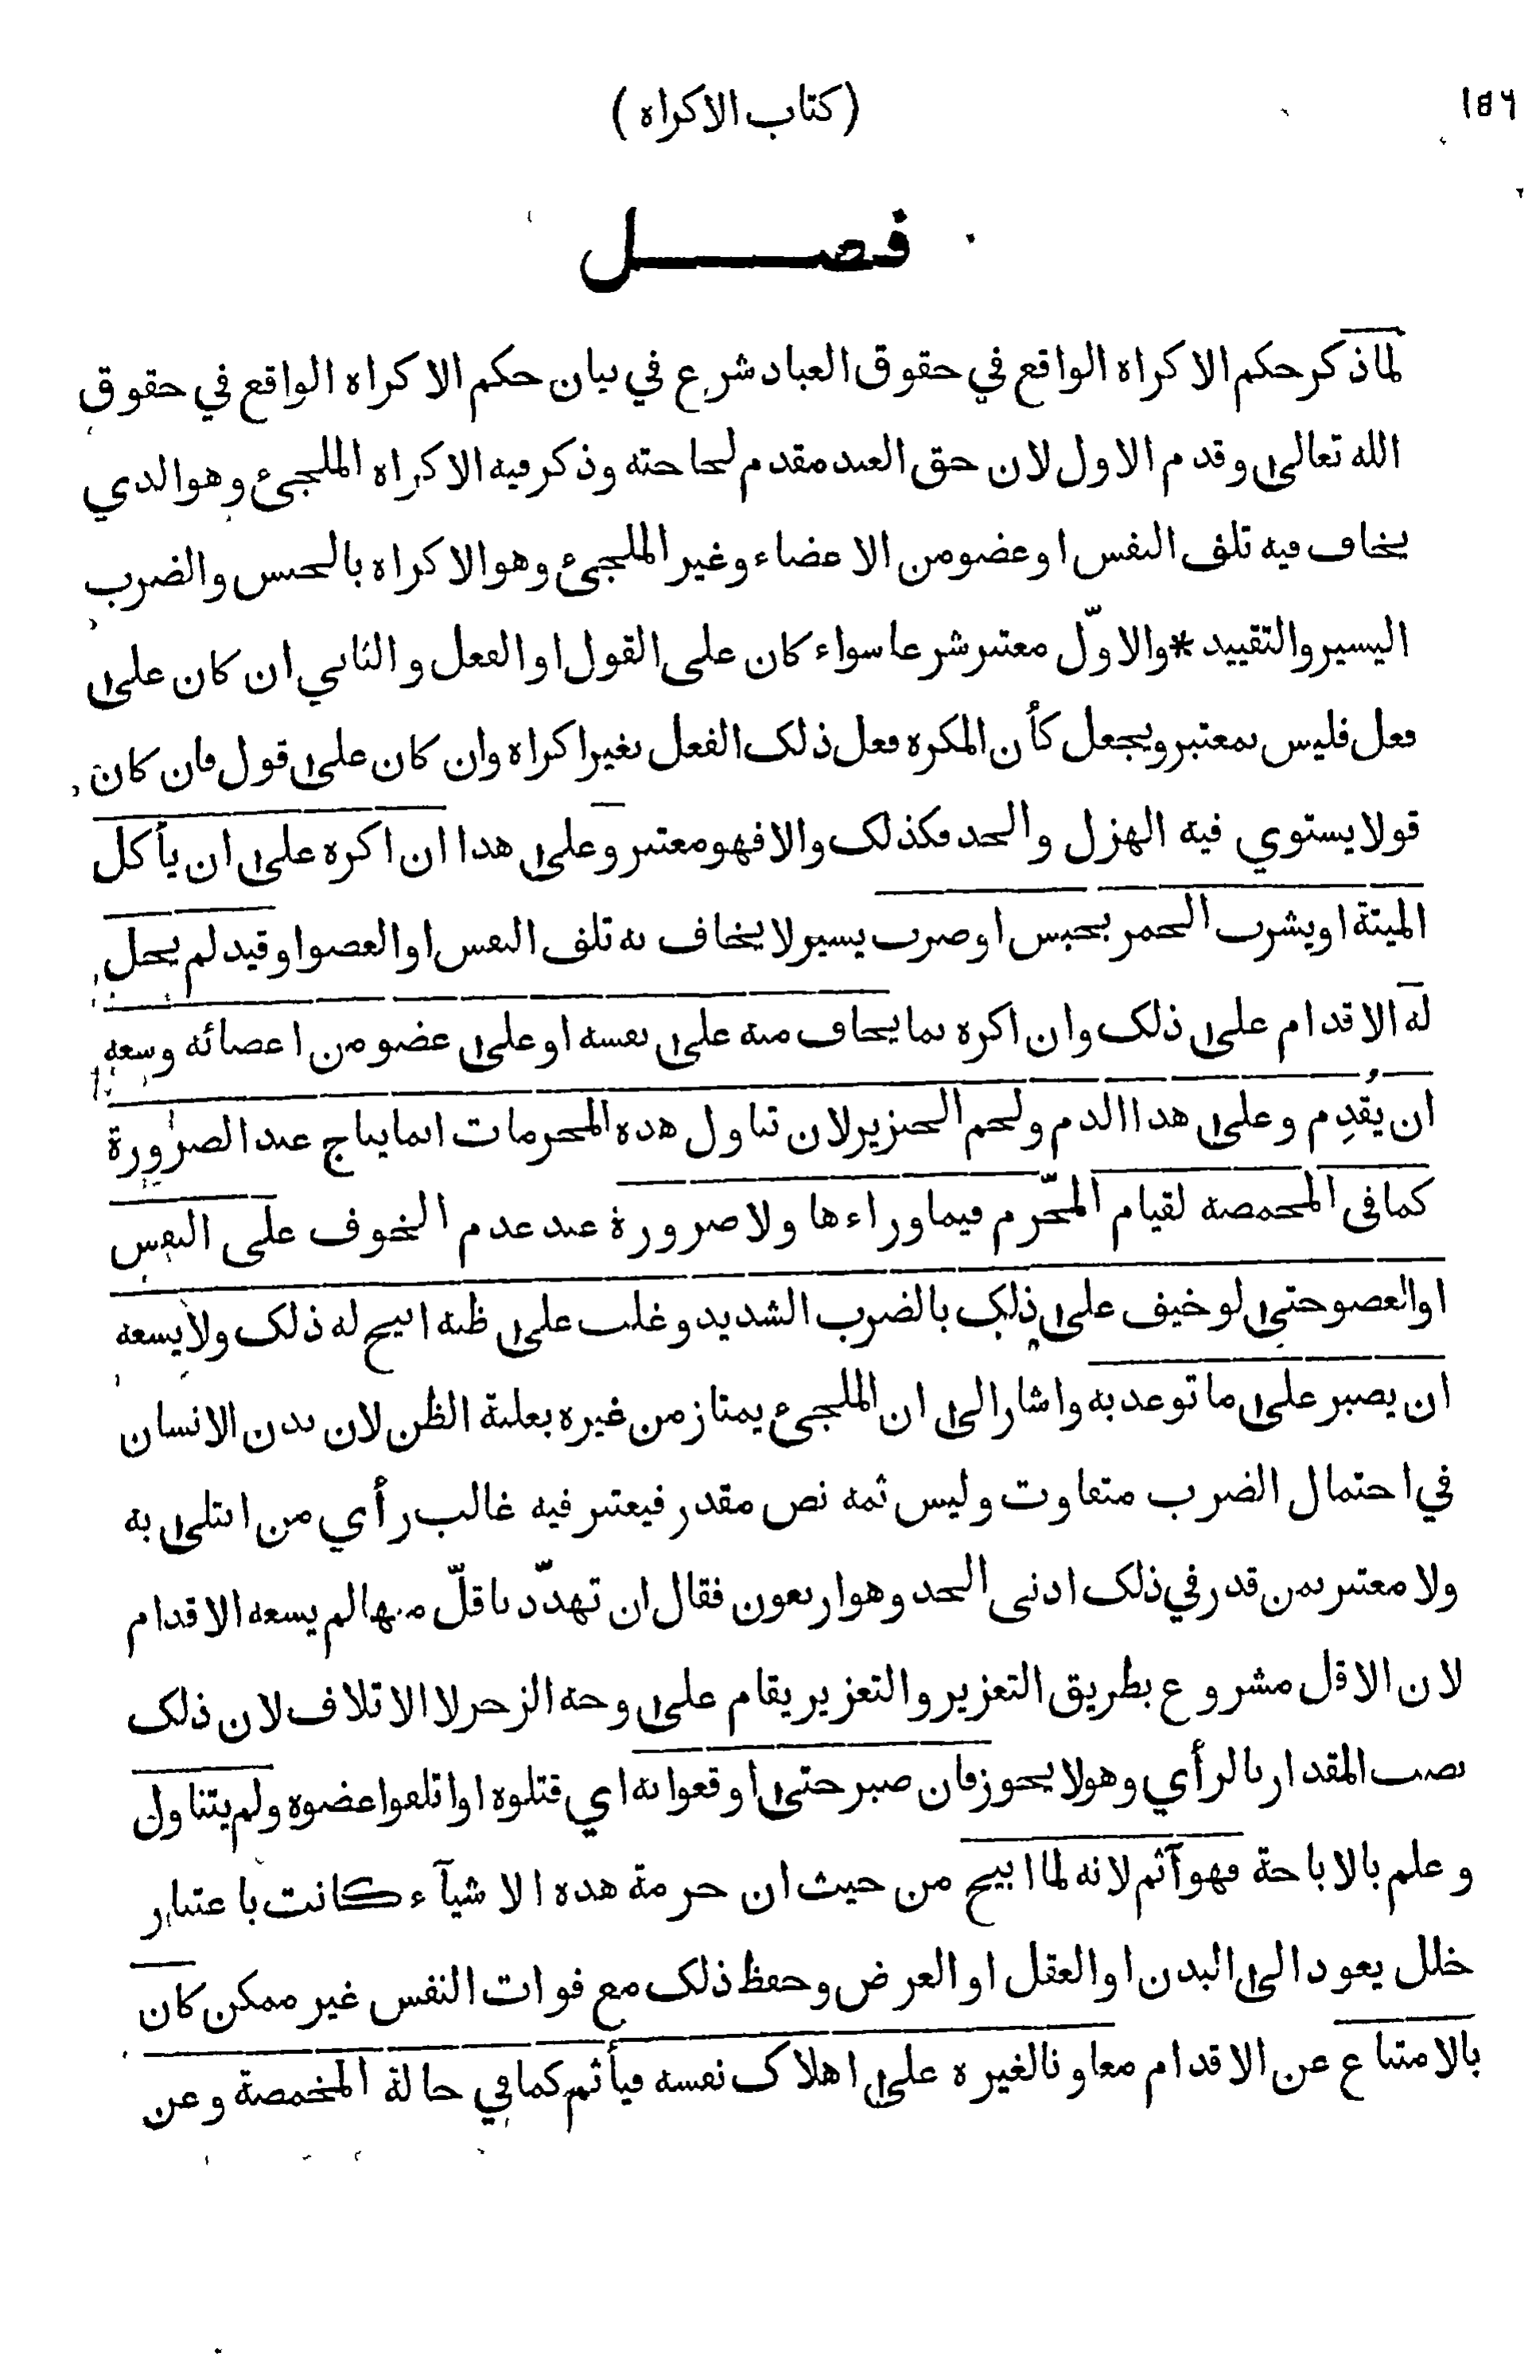 (كتاب الاكراه)
فصل
لما ذكر حكم الاكراه الواقع في حقوق العباد شرع في بيان حكم الاكراه الواقع في حقوق
الله تعالى وقدم الاول لان حق العبد مقدم لحاجته وذكر فيه الاكراه الملجئ وهو الذي
يخاف فيه تلف النفس او عضو من الاعضاء وغير الملجئ وهو الاكراه بالحبس والضرب
اليسير والتقييد * والاوّل معتبر شرعا سواء كان على القول او الفعل والثاني ان كان على
فعل فليس بمعتبر ويجعل كأن المكره فعل ذلك الفعل بغير اكراه وان كان على قول فان كان
قولا يستوي فيه الهزل والجد فكذلك والا فهو معتبر وعلى هذا ان اكره على ان يأكل
الميتة او يشرب الخمر بحبس او ضرب يسير لا يخاف به تلف النفس او العضو او قيد لم يحل
له الاقدام على ذلك وان اكره بما يخاف منه على نفسه او على عضو من اعضائه وسعه
ان يُقدِم وعلى هذا الدم ولحم الخنزير لان تناول هذه المحرمات انما يباح عند الضرورة
كما في المخمصة لقيام المحّرم فيما وراءها ولا ضرورة عند عدم الخوف على النفس
او العضو حتى لو خيف على ذلك بالضرب الشديد وغلب على ظنه ابيح له ذلك ولا يسعه
ان يصبر على ما توعد به واشار الى ان الملجئ يمتاز من غيره بغلبة الظن لان بدن الانسان
في احتمال الضرب متفاوت وليس ثمه نص مقدر فيعتبر فيه غالب رأي من ابتلى به
ولا معتبر بمن قدر في ذلك ادنى الحد وهو اربعون فقال ان تهدّد باقلّ منها لم يسعه الاقدام
لان الاقل مشروع بطريق التعزير والتعزير يقام على وجه الزجر لا الاتلاف لان ذلك
نصب المقدار بالرأي وهو لا يجوز فان صبر حتى اوقعوا به اي قتلوه او اتلفوا عضوه ولم يتناول
وعلم بالاباحة فهو آثم لانه لما ابيح من حيث ان حرمة هذه الاشيآء كانت باعتبار
خلل يعود الى البدن او العقل او العرض وحفظ ذلك مع فوات النفس غير ممكن كان
بالامتناع عن الاقدام معاونا لغيره على اهلاك نفسه فيأثم كما في حالة المخمصة وعن